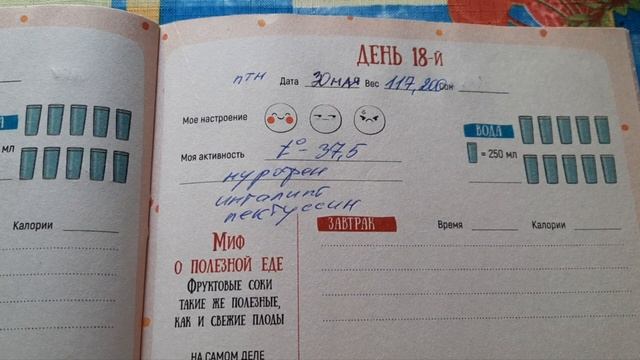 ДЕНЬ 18-Й
птн Дата 30 мая Вес 117,200 он
Мое настроение
Моя активность t° - 37,5
нурофен
ингалипт
пектуссин
ВОДА
= 250 мл
ЗАВТРАК Время Калории
Миф
о полезной еде
Фруктовые соки
такие же полезные,
как и свежие плоды
НА САМОМ ДЕЛЕ
А
мл
Калории